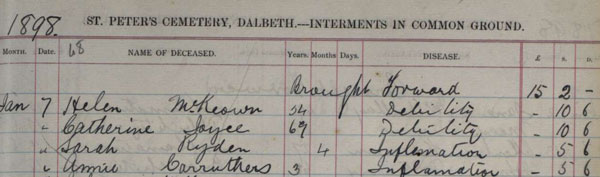 1898. ST. PETER'S CEMETERY, DALBETH.—INTERMENTS IN COMMON GROUND.
MONTH. DATE. 68 NAME OF DECEASED. Years. Months Days. DISEASE. £ s. D.
Brought Forward 15 2 -
Jan 7 Helen McKeown 54 Debility - 10 6
" Catherine Joyce 69 Debility - 10 6
" Sarah Ryden 4 Inflamation - 5 6
" Annie Carruthers 3 Inflamation - 5 6